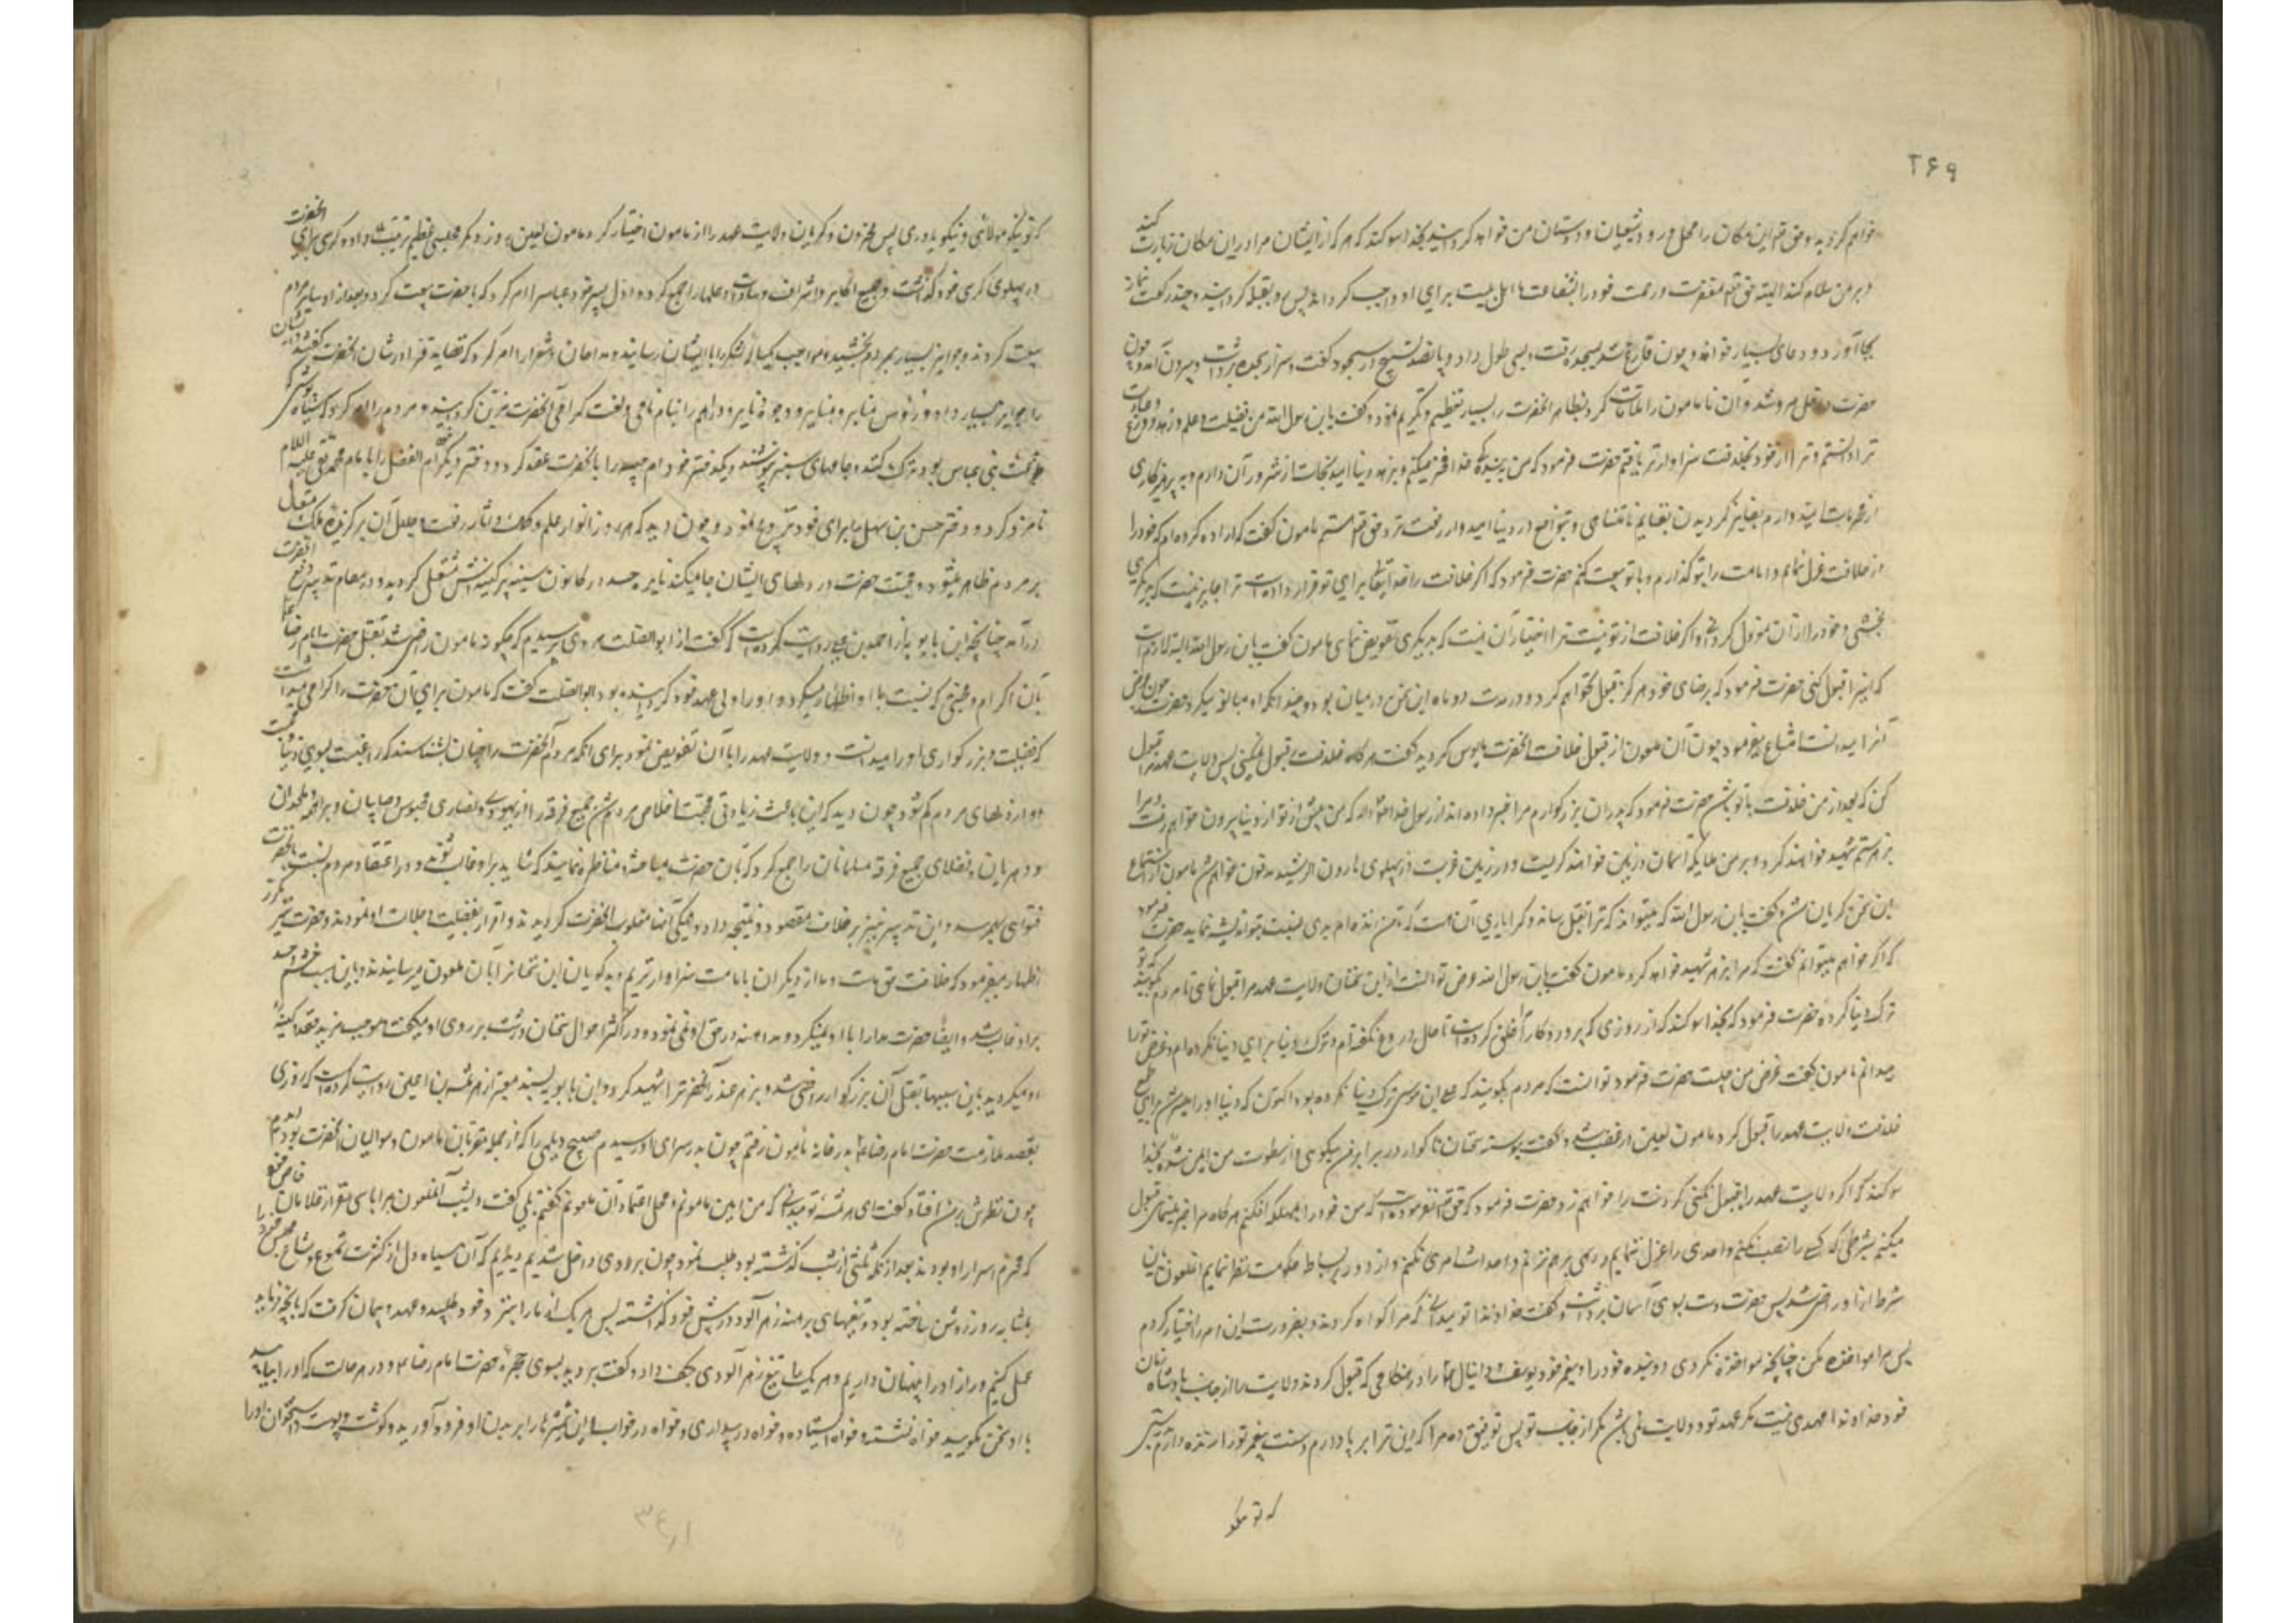 ۲۶۹
خواهم گردید و حق تعالی این مکان را محل ورود شیعیان و دوستان من خواهد گردانید بخدا سوگند که هر که از ایشان مرا در این مکان زیارت کند
و بر من سلام کند البته حق تعالی مغفرت و رحمت خود را بشفاعت ما اهل بیت برای او واجب گرداند پس رو بقبله گردانید و چند رکعت نماز
بجا آورد و دعای بسیار خواند و چون فارغ شد بسجده رفت و بسی طول داد و پانصد تسبیح در سجود گفت و سر از سجده برداشت و بیرون آمد و چون
حضرت داخل مرو شد و آن مامون را ملاقات کرد بظاهر آنحضرت را بسیار تعظیم و تکریم نمود و گفت یابن رسول الله من فضیلت و علم و زهد و ورع و عبادت
ترا دانستم و ترا از خود بخلافت سزاوارتر یافتم حضرت فرمود که من ببندگی خدا فخر میکنم و بزهد دنیا امید نجات از شرور آن دارم و به پرهیزکاری
از محرمات امیدوارم بفایز گردیدن بغنایم نامتناهی و بتواضع در دنیا امیدوار رفعت نزد حق تعالی هستم مامون گفت که اراده کرده‌ام که خود را
از خلافت عزل نمایم و امامت را بتو گذارم و با تو بیعت کنم حضرت فرمود که اگر خلافت را خدایتعالی برای تو قرار داده است ترا جایز نیست که بدیگری
بخشی و خود را از آن معزول گردانی و اگر خلافت از تو نیست ترا اختیار آن نیست که بدیگری تفویض نمائی مامون گفت یابن رسول الله البته لازمست
که اینرا قبول کنی حضرت فرمود که برضای خود هرگز قبول نخواهم کرد و در مدت دو ماه این سخن در میان بود و چندانکه او مبالغه میکرد حضرت چون غرض
آنرا میدانست امتناع میفرمود چون آن ملعون از قبول خلافت آنحضرت مایوس گردید گفت هرگاه خلافت قبول نمیکنی پس ولایت عهد مرا قبول
کن که بعد از من خلافت با تو باشد حضرت فرمود که پدران بزرگوارم مرا خبر داده‌اند از رسول خدا که من پیش از تو از دنیا بیرون خواهم رفت و مرا
بزهر ستم شهید خواهند کرد و بر من ملائکه آسمان و زمین خواهند گریست و در زمین غربت در پهلوی هارون الرشید مدفون خواهم شد مامون از استماع
این سخن گریان شد و گفت یابن رسول الله که میتواند که ترا بقتل رساند و کرا یارای آنست که تا من زنده‌ام بدی نسبت بتو اندیشه نماید حضرت فرمود
که اگر خواهم میتوانم گفت که مرا بزهر شهید خواهد کرد مامون گفت یابن رسول الله غرض تو آنست از این سخنان ولایت عهد مرا قبول ننمائی تا مردم گویند که تو
ترک دنیا کرده حضرت فرمود که بخدا سوگند که از روزی که پروردگار مرا خلق کرده است تا حال دروغ نگفته‌ام و ترک دنیا برای دنیا نکرده‌ام و غرض ترا
میدانم مامون گفت غرض من چیست حضرت فرمود غرض تو آنست که مردم بگویند که علی ابن موسی ترک دنیا نکرده بود اکنون که دنیا او را میسر شد برای طمع
خلافت ولایت عهد را قبول کرد مامون لعین در غضب شد و گفت پیوسته سخنان ناگوار در برابر من میگوئی و از سطوت من ایمن شده بخدا
سوگند که اگر ولایت عهد را قبول نکنی گردنت را خواهم زد حضرت فرمود که حق تعالی نفرموده است که من خود را بمهلکه افکنم هرگاه مرا جبر مینمائی قبول
میکنم بشرطی که کسی را نصب نکنم و احدی را عزل ننمایم و رسمی برهم نزنم و احداث امری نکنم و از دور بر بساط حکومت نظر نمایم آنملعون باین
شرط از او راضی شد پس حضرت دست بسوی آسمان برداشت و گفت خداوندا تو میدانی که مرا اکراه کردند و بضرورت این امر را اختیار کردم
پس مرا مواخذه مکن چنانچه مواخذه نکردی دو بنده خود را و پیغمبر خود یوسف و دانیال را در هنگامی که قبول کردند ولایت را از جانب پادشاه زمان
خود خداوندا عهدی نیست مگر عهد تو و ولایت نمی باشد مگر از جانب تو پس توفیق ده مرا که دین ترا برپا دارم و سنت پیغمبر تو را زنده دارم
که تو نیکو
که تو نیکو مولائی و نیکو یاوری پس محزون و گریان ولایت عهد را از مامون اختیار کرد مامون لعین روز دیگر مجلسی عظیم ترتیب داد و کرسی برای آنحضرت
در پهلوی کرسی خود گذاشت و جمیع اکابر و اشراف و سادات و علما را جمع کرد و اول پسر خود عباس را امر کرد که با حضرت بیعت کرد و بعد از او سایر مردم
بیعت کردند و جوایز بسیار بمردم بخشید و مواجب یکساله لشکر را بایشان رسانید و مداحان و شعرا را امر کرد که قصاید غرا در شان آنحضرت گفتند و ایشان
را جوایز بسیار داد و رؤس منابر و وجوه دنانیر و دراهم را بنام نامی و لقب گرامی آنحضرت مزین گردانید و مردم را امر کرد که سیاه پوشی
که بدعت بنی عباس بود ترک کنند و جامهای سبز پوشند و یک دختر خود ام حبیبه را بآنحضرت عقد کرد و دختر دیگر ام الفضل را بامام محمد تقی علیه السلام
نامزد کرد و دختر حسن بن سهل را برای خود تزویج نمود و چون دید که هر روز انوار علم و کمال و آثار رفعت و جلال آن برگزیده ملک متعال
بر مردم ظاهر میشود و محبت حضرت در دلهای ایشان جا میکند نایره حسد در کانون سینه پر کینه‌اش مشتعل گردید و در مقام تدبیر دفع آنحضرت
درآمد چنانچه ابن بابویه از احمد بن علی روایت کرده است که گفت از ابوالصلت هروی پرسیدم که چگونه مامون راضی شد بقتل حضرت امام رضا
بآن اکرام و محبتی که نسبت باو اظهار میکرد و او را ولی عهد خود گردانیده بود ابوالصلت گفت که مامون برای آن حضرت را گرامی میداشت
که فضیلت و بزرگواری او را میدانست و ولایت عهد را باآن تفویض نمود برای آنکه مردم آنحضرت را چنان بشناسند که رغبت بسوی دنیا دارد و محبت
او از دلهای مردم کم شود چون دید که این باعث زیادتی محبت و اخلاص مردم شد جمیع فرقه را از یهود و نصاری و مجوس و صابیان و براهمه و ملحدان
و دهریان و فضلای جمیع فرقه مسلمانان را جمع کرد که بآن حضرت مباحثه و مناظره نمایند که شاید بر او غالب شوند و در اعتقاد مردم نسبت بآنحضرت
فتوری بهم رسد و این تدبیر نیز برخلاف مقصود او نتیجه داد و همگی آنها مغلوب آنحضرت گردیدند و اقرار بفضیلت و جلالت او نمودند و حضرت مکرر
اظهار میفرمود که خلافت حق ماست و ما از دیگران بامامت سزاوارتریم و بدگویان این سخنانرا بآن ملعون میرسانیدند و باین سبب خشم و حسد
بر او غالب شد و ایضا حضرت مدارا با او نمیکرد و مداهنه در حق او نمی نمود و در اکثر احوال سخنان درشت بر روی او میگفت و موجب مزید حقد و کینه
او میگردید باین سببها بقتل آن بزرگوار راضی شد و بزهر غدر آنحضرترا شهید کرد و ابن بابویه بسند معتبر از هرثمه بن اعین روایت کرده است که روزی
بقصد ملازمت حضرت امام رضا بدرخانه مامون رفتم چون بدر سرای او رسیدم صبیح دیلمی را که از جمله مقربان مامون و موالیان آنحضرت بود دیدم
چون نظرش بر من افتاد گفت ای هرثمه تو میدانی که من امین مامونم و محل اعتماد آن ملعونم گفتم بلی گفت دیشب آنملعون مرا با سی نفر از غلامان خاص
که محرم اسرار او بودند بعد از آنکه ثلثی از شب گذشته بود طلب نمود چون بر وی داخل شدیم دیدیم که آن سیاه دل از کثرت شموع و مشاعل مجلس خود را
بمثابه روز روشن ساخته بود و تیغهای برهنه زهر آلود در پیش خود گذاشته پس هر یک از ما را بنزد خود طلبید و عهد و پیمان گرفت که بآنچه فرماید
عمل کنیم و راز او را پنهان داریم و هر یک را تیغ زهر آلودی بکف داد و گفت بروید بسوی حجره حضرت امام رضا و در هر حالت که او را بیابید
با او سخن مگوئید خواه نشسته و خواه ایستاده و خواه در بیداری و خواه در خواب این شمشیرها را بر بدن او فرود آورید و گوشت و پوست و استخوان او را